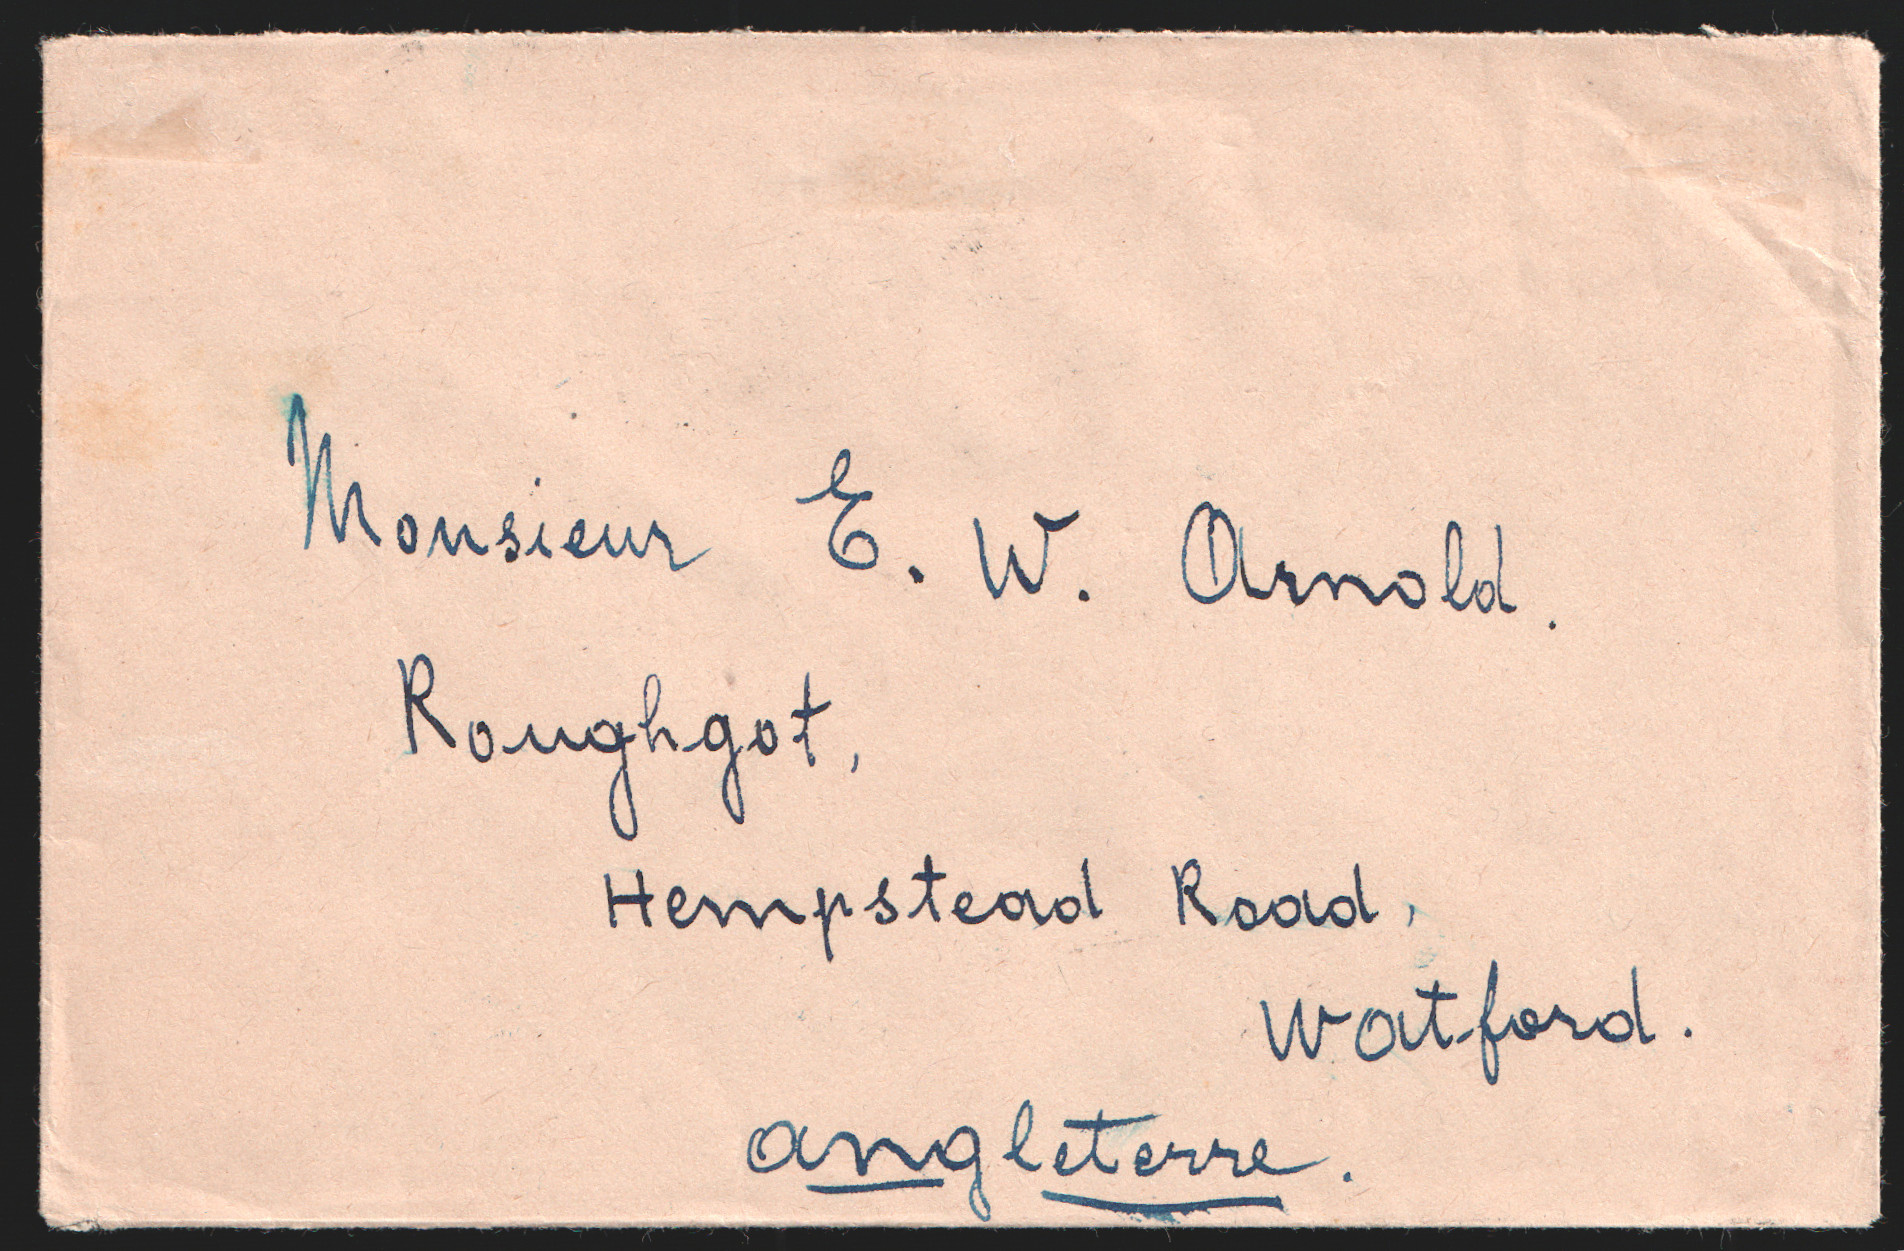 Monsieur E. W. Arnold.
Roughgot,
Hempstead Road,
Watford.
angleterre.